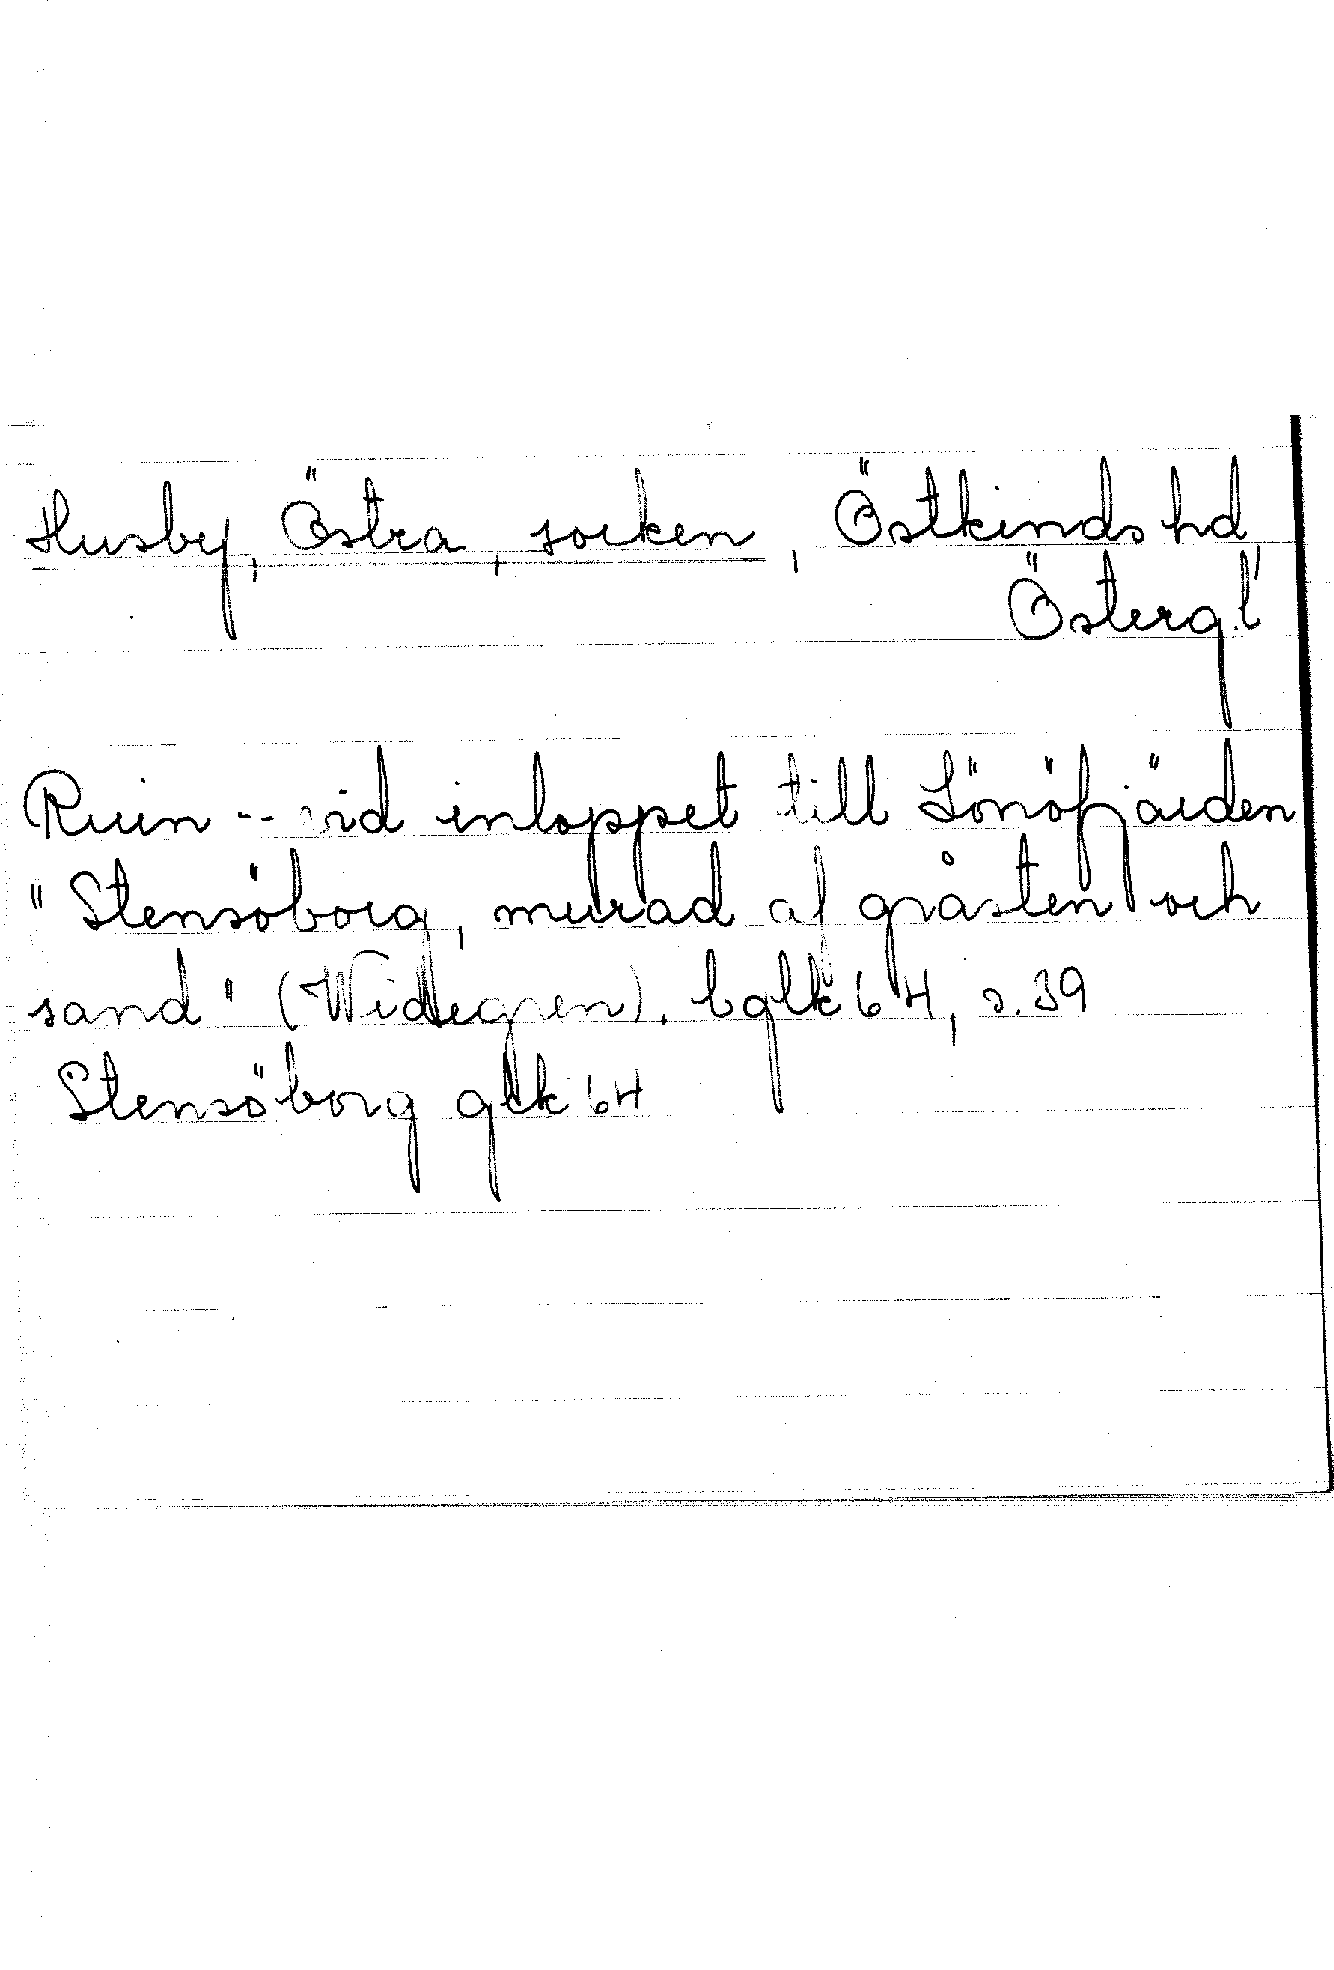 Husby, Östra, socken, Östkinds hd,
Östergl
Ruin -- vid inloppet till Lönöfjärden
"Stensöborg, murad af gråsten och
sand" (Widegren). bglk 64, s. 39
Stensöborg glk 64